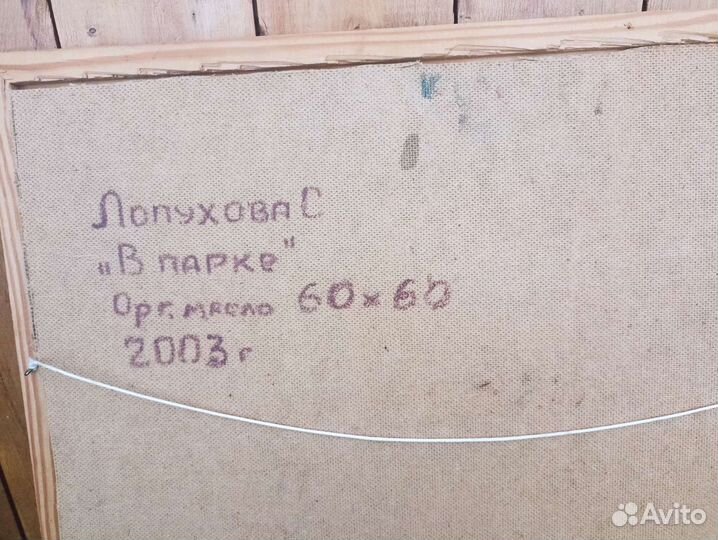 Лопухова С
„В парке"
Орг. масло 60х60
2003 г
Avito